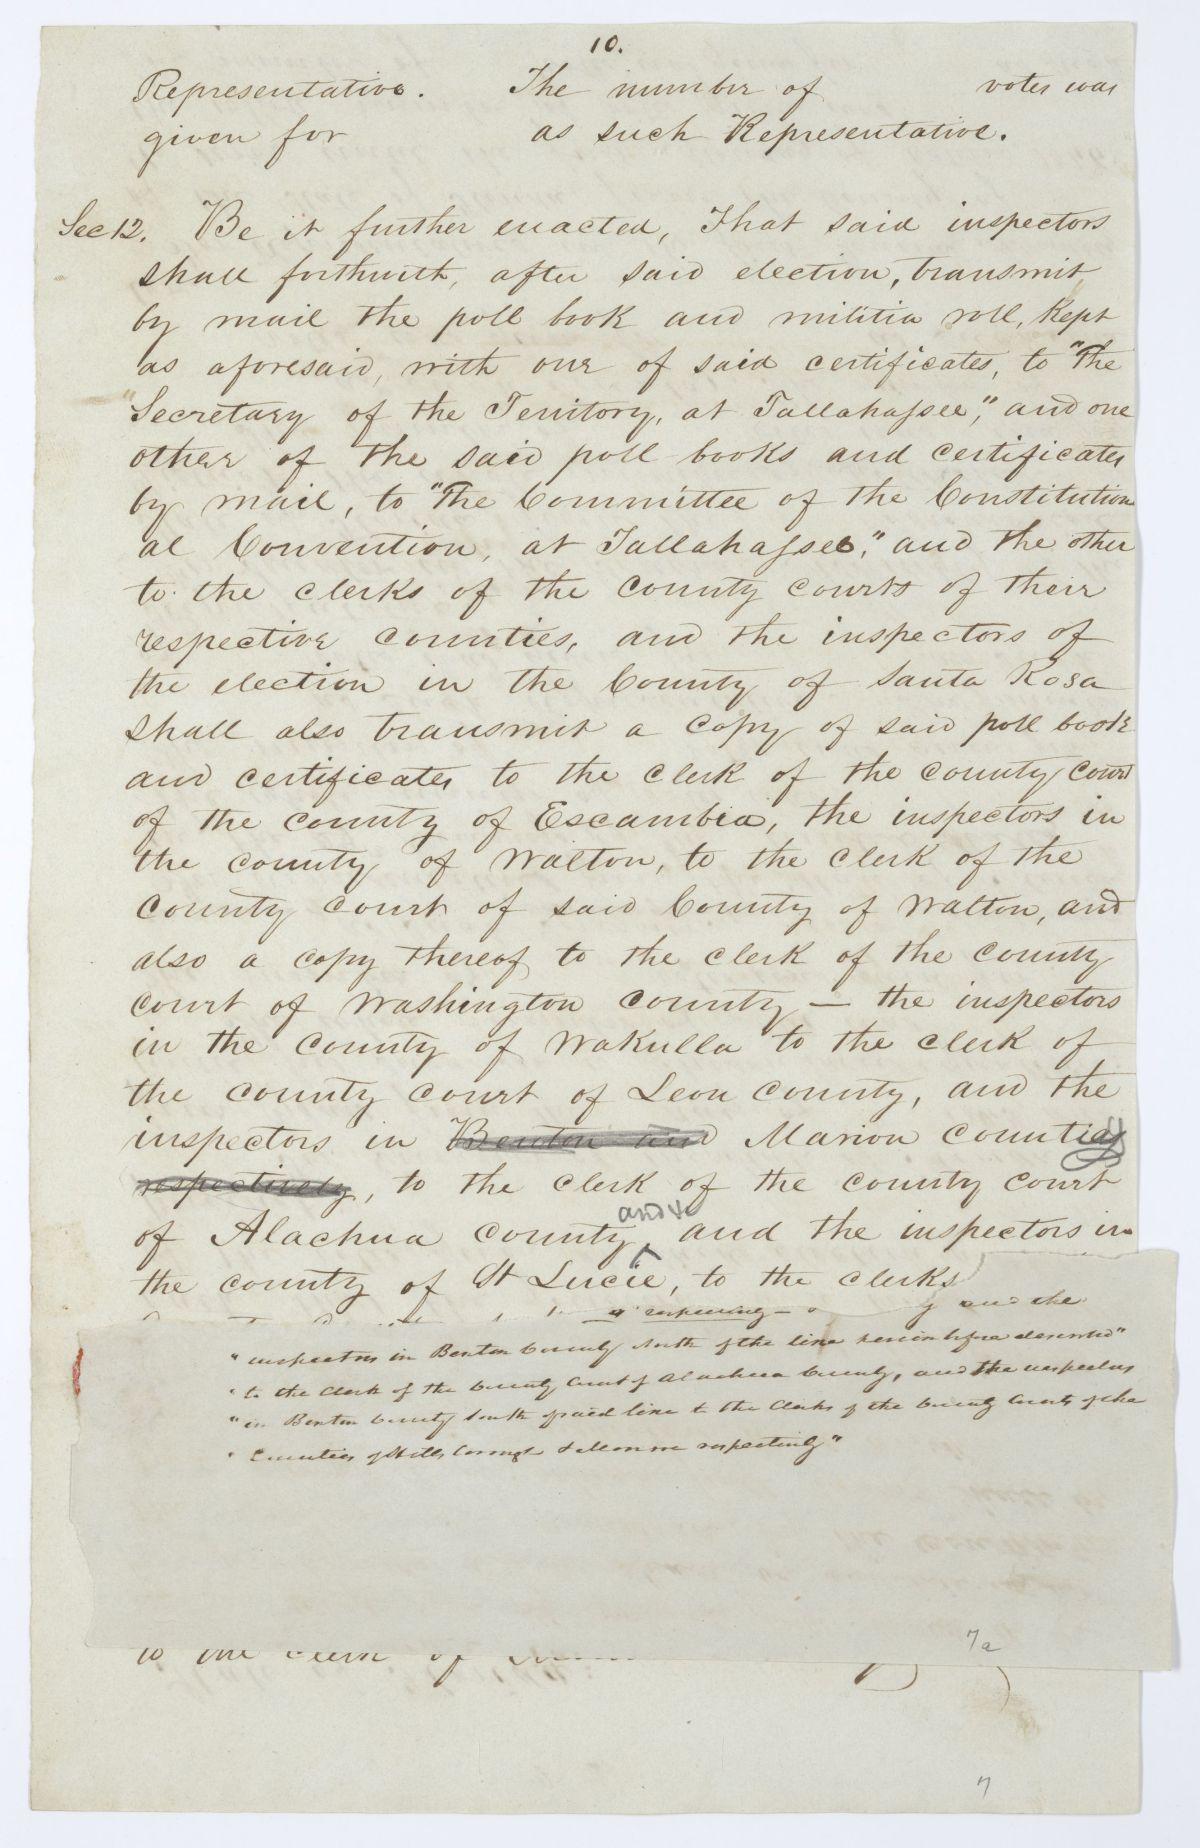 10.
Representative. The number of votes was
given for as such Representative.
Sec 12. Be it further enacted, That said inspectors
shall forthwith, after said election, transmit
by mail the poll book and militia roll, Kept
as aforesaid, with one of said certificates, to "The
Secretary of the Territory, at Tallahassee," and one
other of the said poll books and certificates
by mail, to "The Committee of the Constitution
al Convention, at Tallahassee," and the other
to the clerks of the county courts of their
respective counties, and the inspectors of
the election in the County of Santa Rosa
shall also transmit a copy of said poll book
and certificates to the clerk of the county court
of the county of Escambia, the inspectors in
the county of Walton, to the clerk of the
county court of said County of Walton, and
also a copy thereof to the clerk of the county
court of Washington county — the inspectors
in the county of Wakulla to the clerk of
the county court of Leon county, and the
inspectors in Benton and Marion counties
respectively, to the clerk of the county court
of Alachua county, and the inspectors in
the county of St Lucie, to the clerks
and the
"inspectors in Benton County North of the line herein before described"
"to the Clerk of the County Court of Alachua County, and the inspectors
"in Benton County South of said line to the Clerks of the County Courts of the
"Counties of Hillsborough & Monroe respectively"
7a
to the clerk of
7